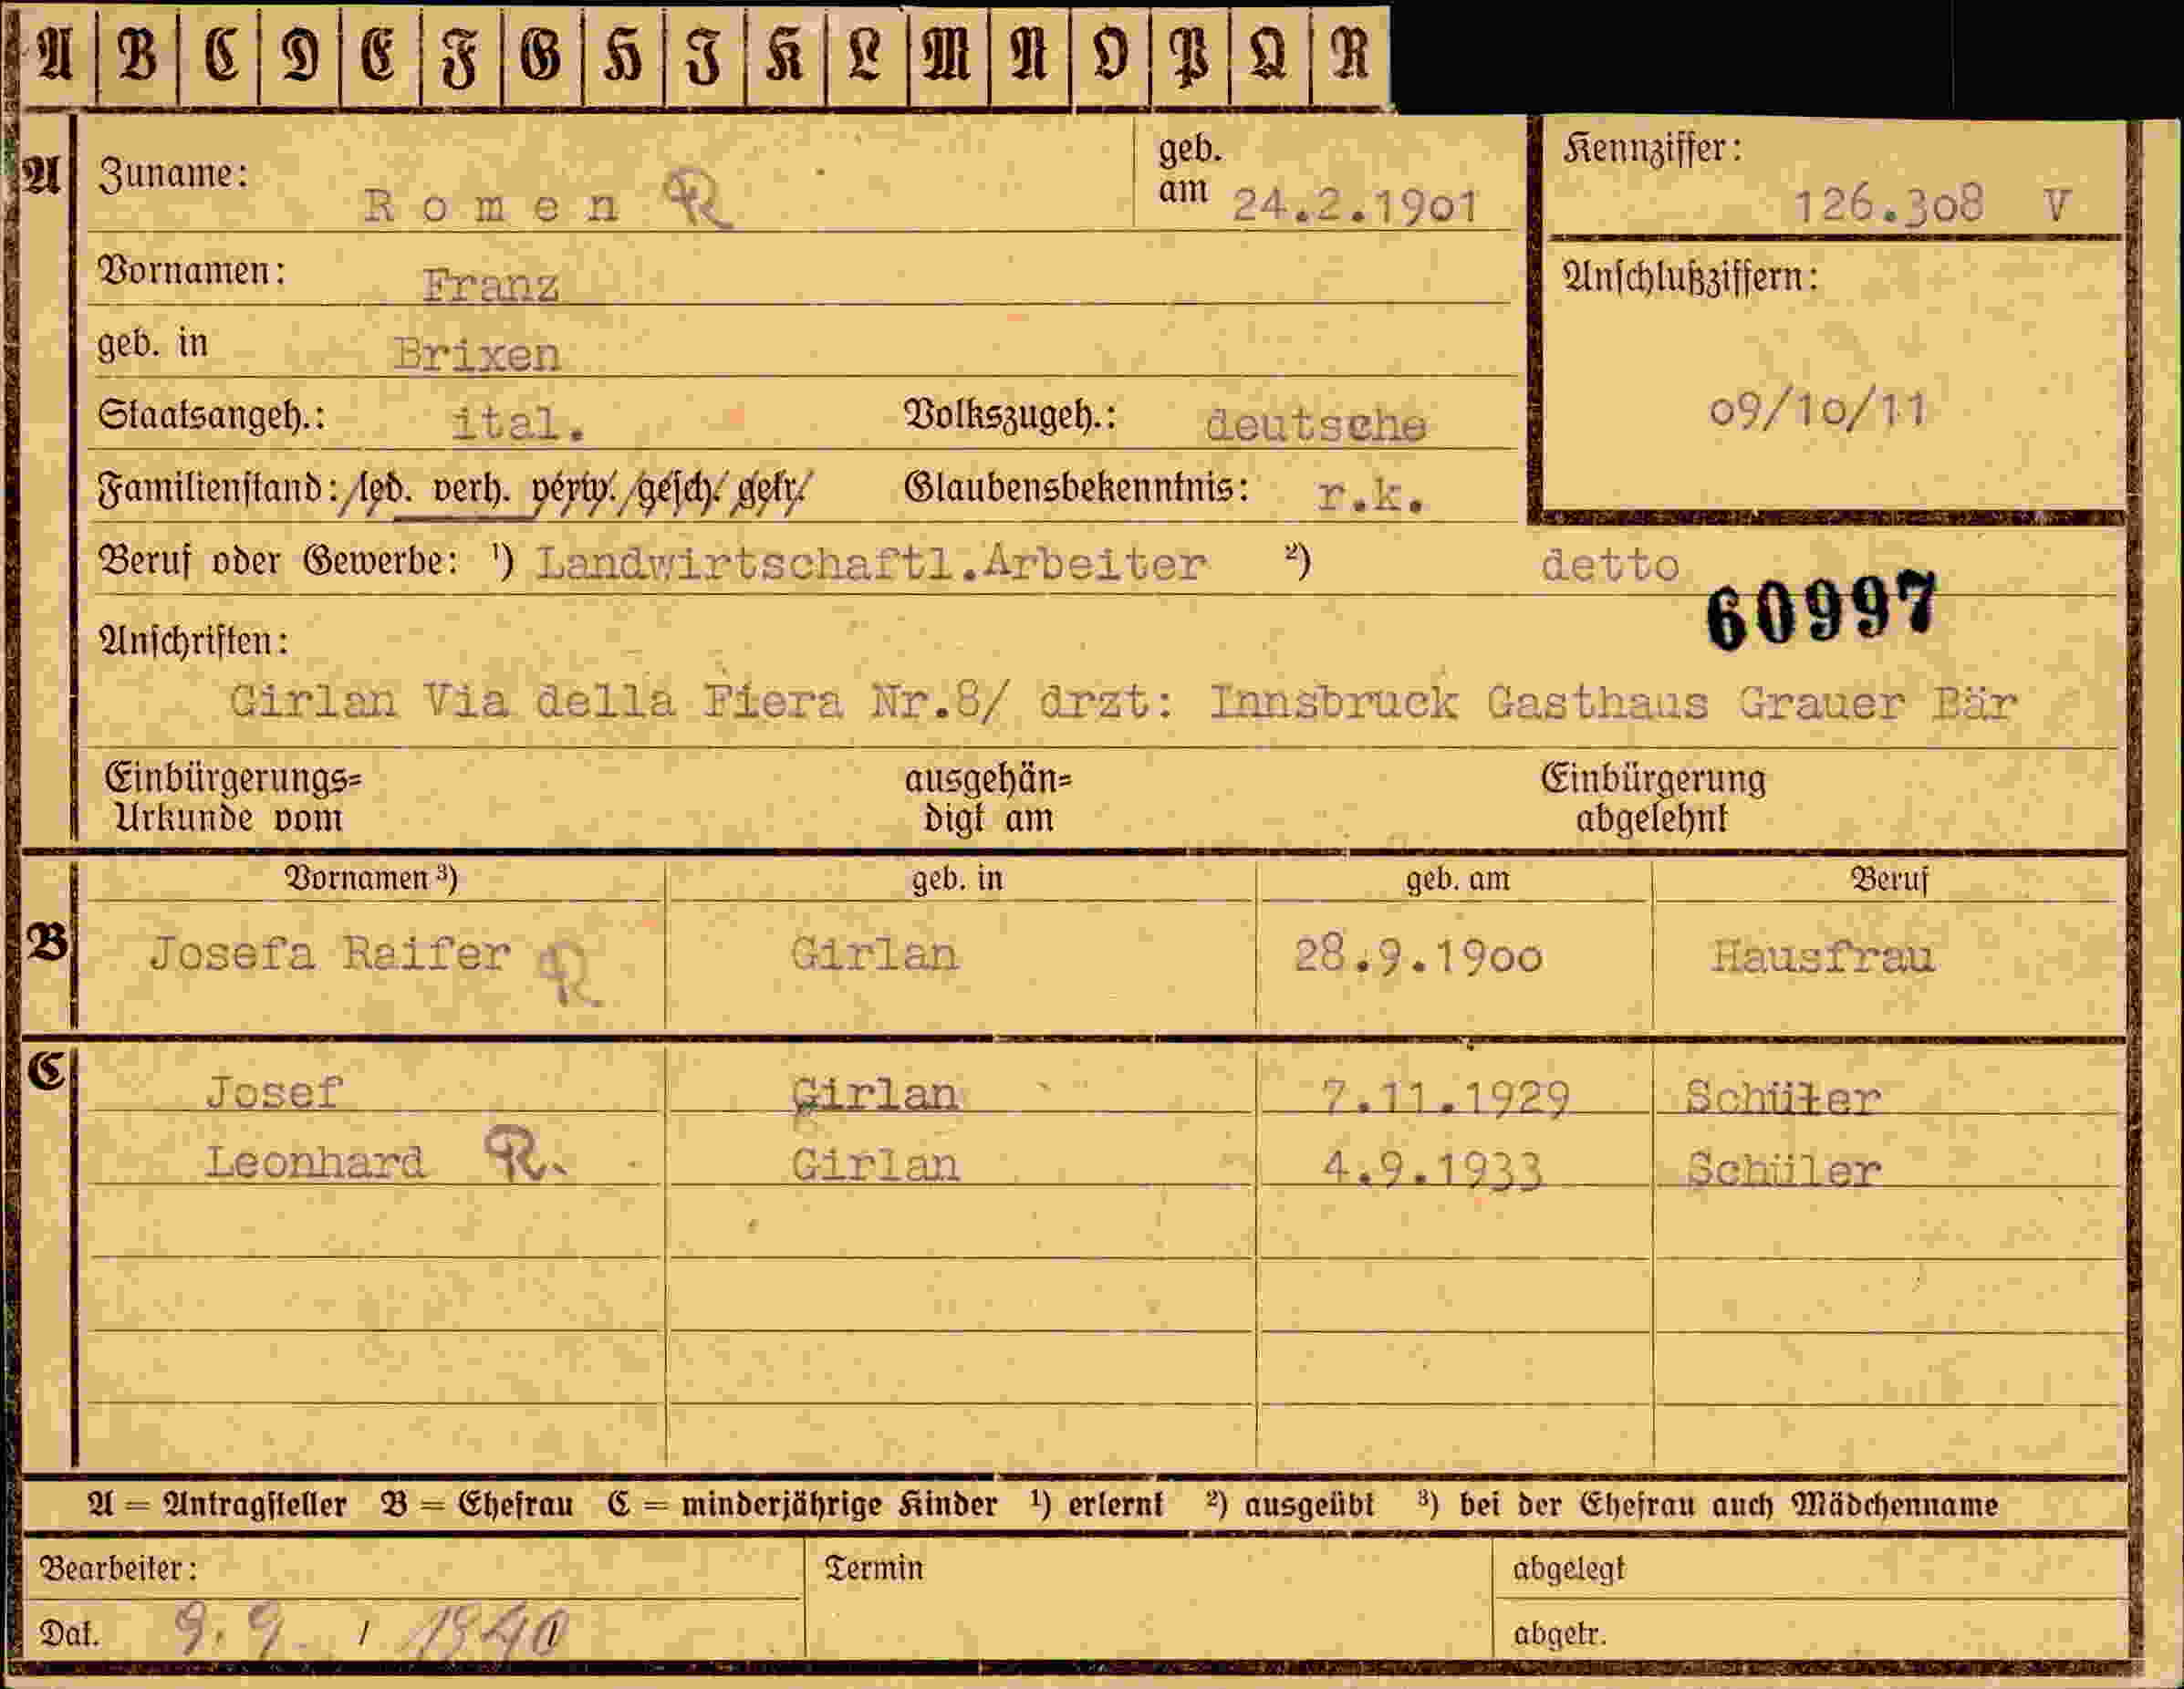 A B C D E F G H I K L M N O P Q R
A Zuname: Romen R geb. am 24.2.1901 Kennziffer: 126.308 V
Vornamen: Franz Anschlußziffern:
geb. in Brixen
Staatsangeh.: ital. Volkszugeh.: deutsche 09/10/11
Familienstand: led. verh. verw. gesch. getr. Glaubensbekenntnis: r.k.
Beruf oder Gewerbe: ¹) Landwirtschaftl.Arbeiter ²) detto
60997
Anschriften:
Girlan Via della Fiera Nr.8/ drzt: Innsbruck Gasthaus Grauer Bär
Einbürgerungs= ausgehän= Einbürgerung
Urkunde vom digt am abgelehnt
Vornamen ³) geb. in geb. am Beruf
B Josefa Raifer R Girlan 28.9.1900 Hausfrau
C Josef Girlan 7.11.1929 Schüler
Leonhard R. Girlan 4.9.1933 Schüler
A = Antragsteller B = Ehefrau C = minderjährige Kinder ¹) erlernt ²) ausgeübt ³) bei der Ehefrau auch Mädchenname
Bearbeiter: Termin abgelegt
Dat. 9.9. / 1940 abgetr.